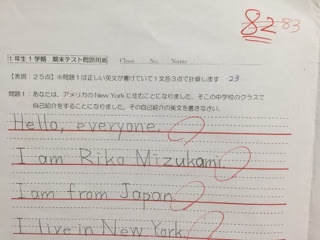 82 83
1年生1学期 期末テスト問題用紙 Class No. Name
【表現:25点】※問題1は正しい英文が書けていて1文各3点で計算します 23
問題1:あなたは、アメリカのNew Yorkに住むことになりました。そこの中学校のクラスで
自己紹介をすることになりました。その自己紹介の英文を書きなさい。
Hello, everyone.
I am Rika Mizukami.
I am from Japan.
I live in New York.